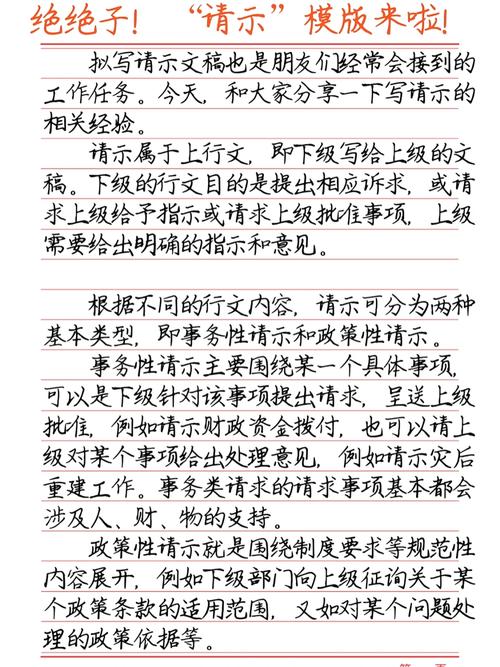 绝绝子！“请示”模版来啦！
拟写请示文稿也是朋友们经常会接到的
工作任务。今天，和大家分享一下写请示的
相关经验。
请示属于上行文，即下级写给上级的文
稿。下级的行文目的是提出相应诉求，或请
求上级给予指示或请求上级批准事项，上级
需要给出明确的指示和意见。
根据不同的行文内容，请示可分为两种
基本类型，即事务性请示和政策性请示。
事务性请示主要围绕某一个具体事项，
可以是下级针对该事项提出请求，呈送上级
批准，例如请示财政资金拨付，也可以请上
级对某个事项给出处理意见，例如请示灾后
重建工作。事务类请求的请求事项基本都会
涉及人、财、物的支持。
政策性请示就是围绕制度要求等规范性
内容展开，例如下级部门向上级征询关于某
个政策条款的适用范围，又如对某个问题处
理的政策依据等。